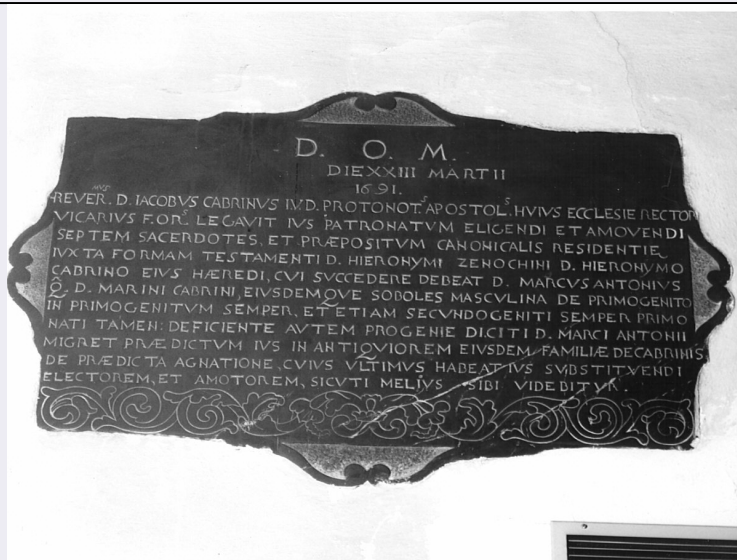 D. O. M.
DIE XXIII MARTII
1691.
REVER.MVS D. IACOBVS CABRINVS IV.D. PROTONOT.S APOSTOL.S HVIVS ECCLESIE RECTOR
VICARIVS FOR.S LEGAVIT IVS PATRONATVM ELIGENDI ET AMOVENDI
SEPTEM SACERDOTES, ET PRÆPOSITVM CANONICALIS RESIDENTIE
IVXTA FORMAM TESTAMENTI D. HIERONYMI ZENOCHINI D. HIERONYMO
CABRINO EIVS HÆREDI, CVI SVCCEDERE DEBEAT D. MARCVS ANTONIVS
Q. D. MARINI CABRINI, EIVSDEMQVE SOBOLES MASCVLINA DE PRIMOGENITO
IN PRIMOGENITVM SEMPER, ET ETIAM SECVNDOGENITI SEMPER PRIMO
NATI TAMEN: DEFICIENTE AVTEM PROGENIE DICITI D. MARCI ANTONII
MIGRET PRÆDICTVM IVS IN ANTIQVIOREM EIVSDEM FAMILIÆ DE CABRINIS,
DE PRÆDICTA AGNATIONE, CVIVS VLTIMVS HABEAT IVS SVBSTITVENDI
ELECTOREM, ET AMOTOREM, SICVTI MELIVS SIBI VIDEBITVR.